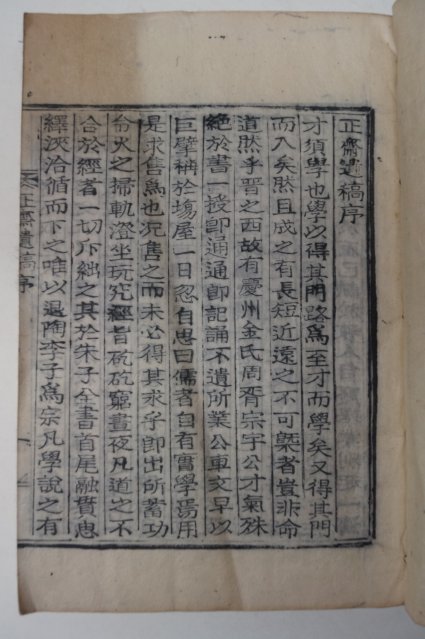 正齋遺稿序
才須學也學以得其門路爲至才而學矣又得其門
而入矣然且成之有長短近遠之不可槩者豈非命
道然乎晋之西故有慶州金氏周胥宗宇公才氣殊
絶於書一授卽通通卽記誦不遺所業公車文早以
巨擘稱於塲屋一日忽自思曰儒者自有實學焉用
是求售爲也况售之而未必得其求乎卽出所蓄功
令火之掃軌澄坐玩究經旨矻矻窮晝夜凡道之不
合於經者一切斥絀之其於朱子全書首尾融貫思
繹浹洽循而下之唯以退陶李子爲宗凡學說之有
正齋遺稿序